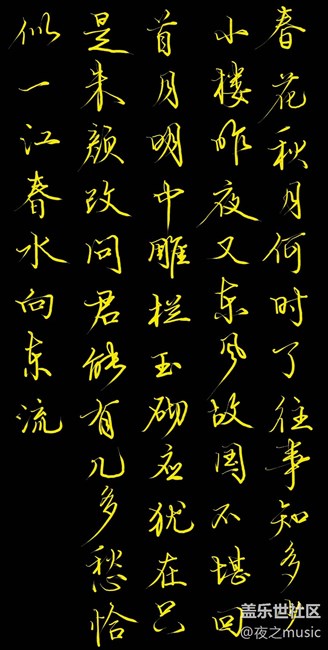 春花秋月何时了往事知多少
小楼昨夜又东风故国不堪回
首月明中雕栏玉砌应犹在只
是朱颜改问君能有几多愁恰
似一江春水向东流
盖乐世社区
@夜之music